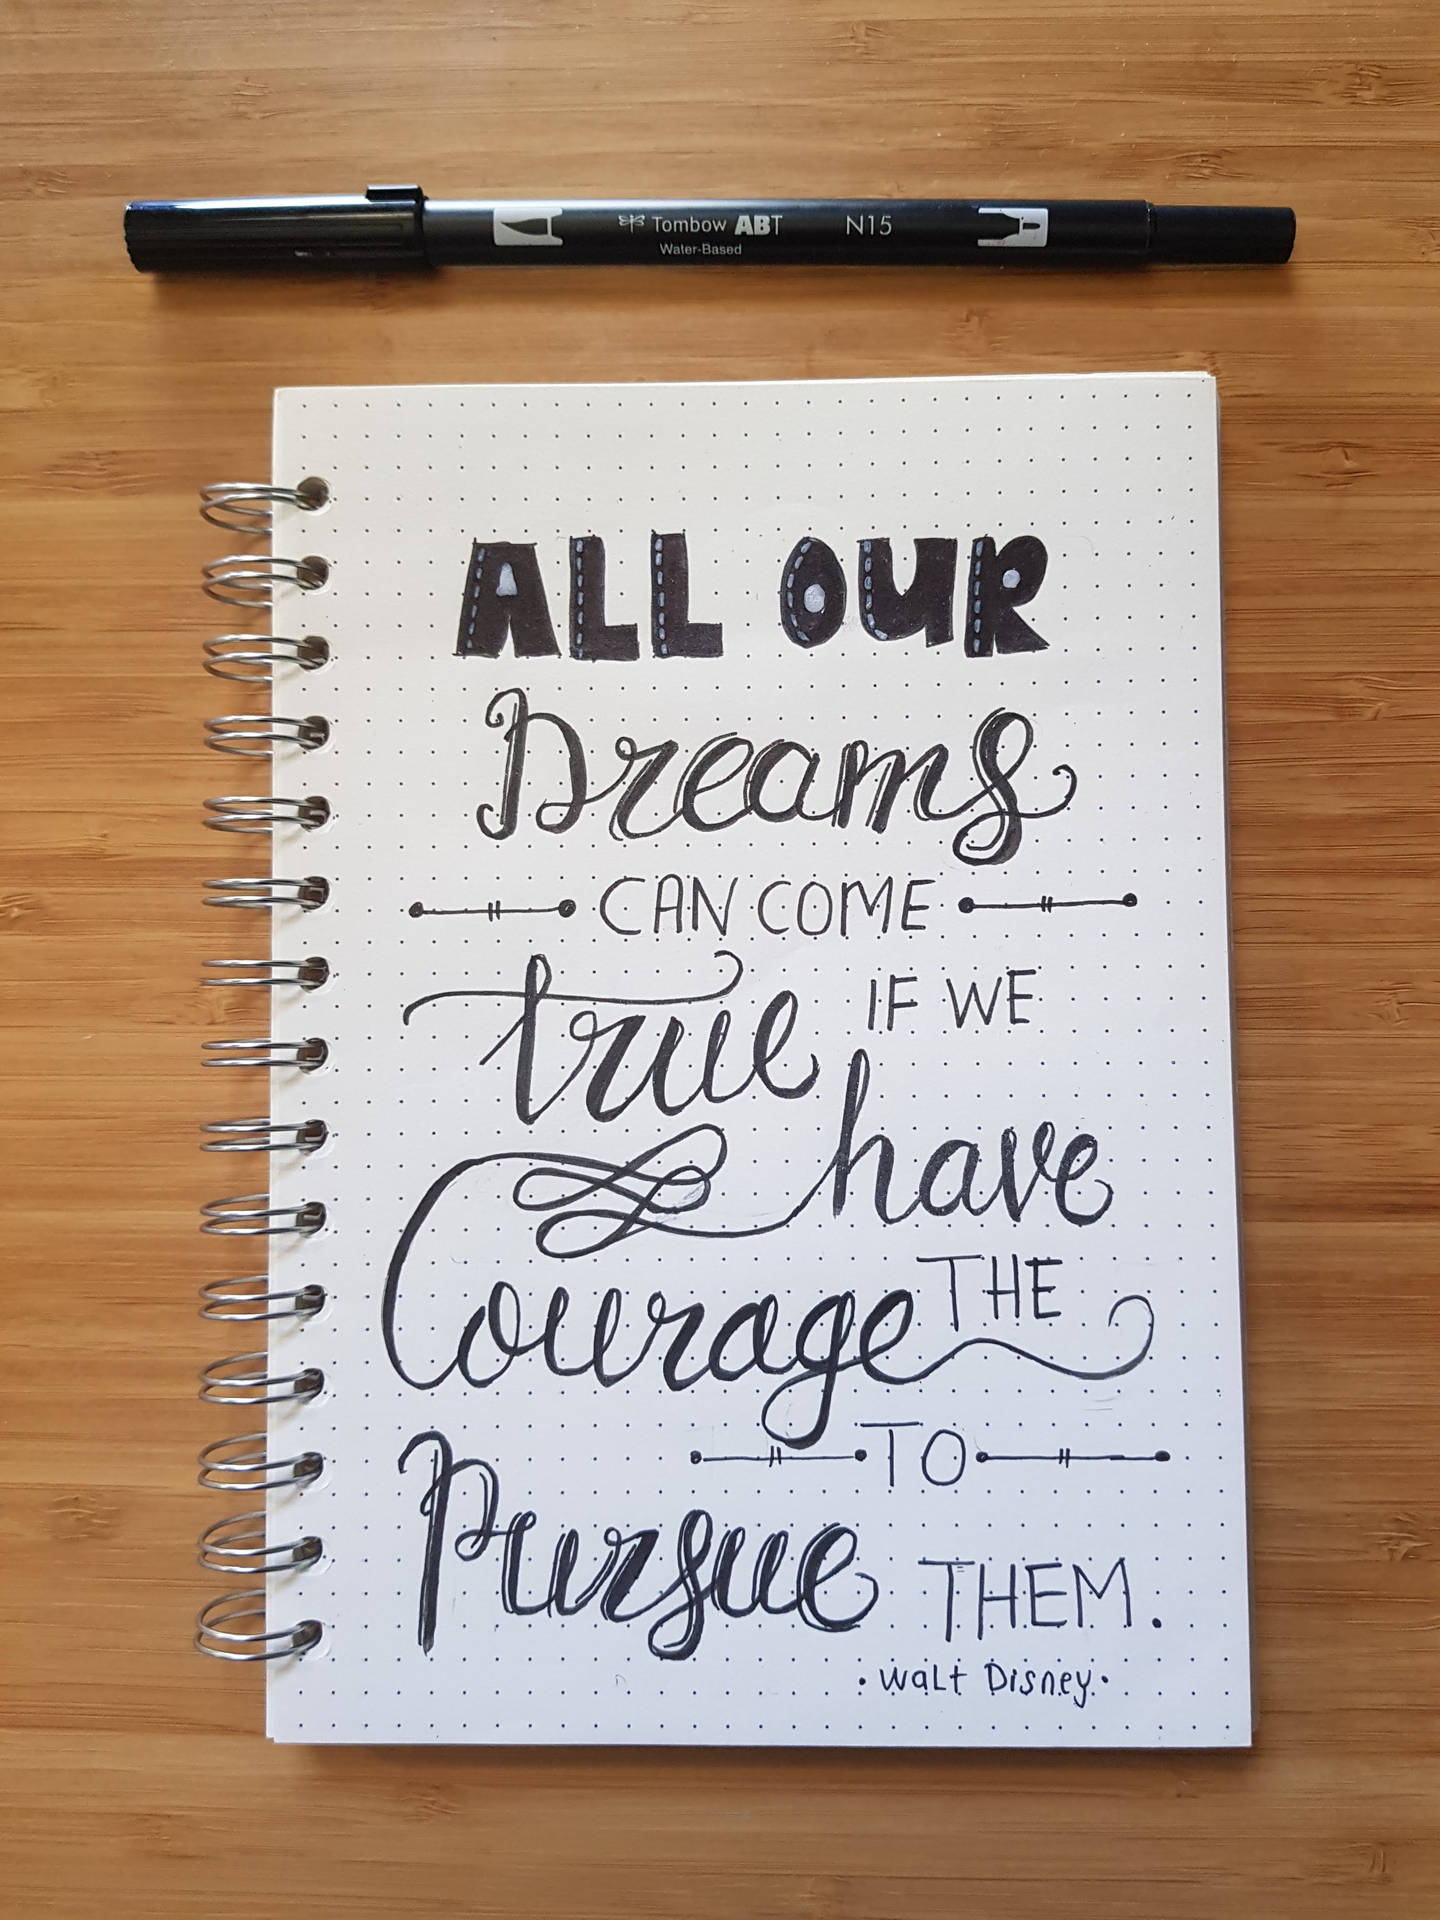 Tombow ABT N15
Water-Based
ALL OUR
Dreams
CAN COME
true IF WE
have
Courage THE
TO
Pursue THEM.
· Walt Disney ·